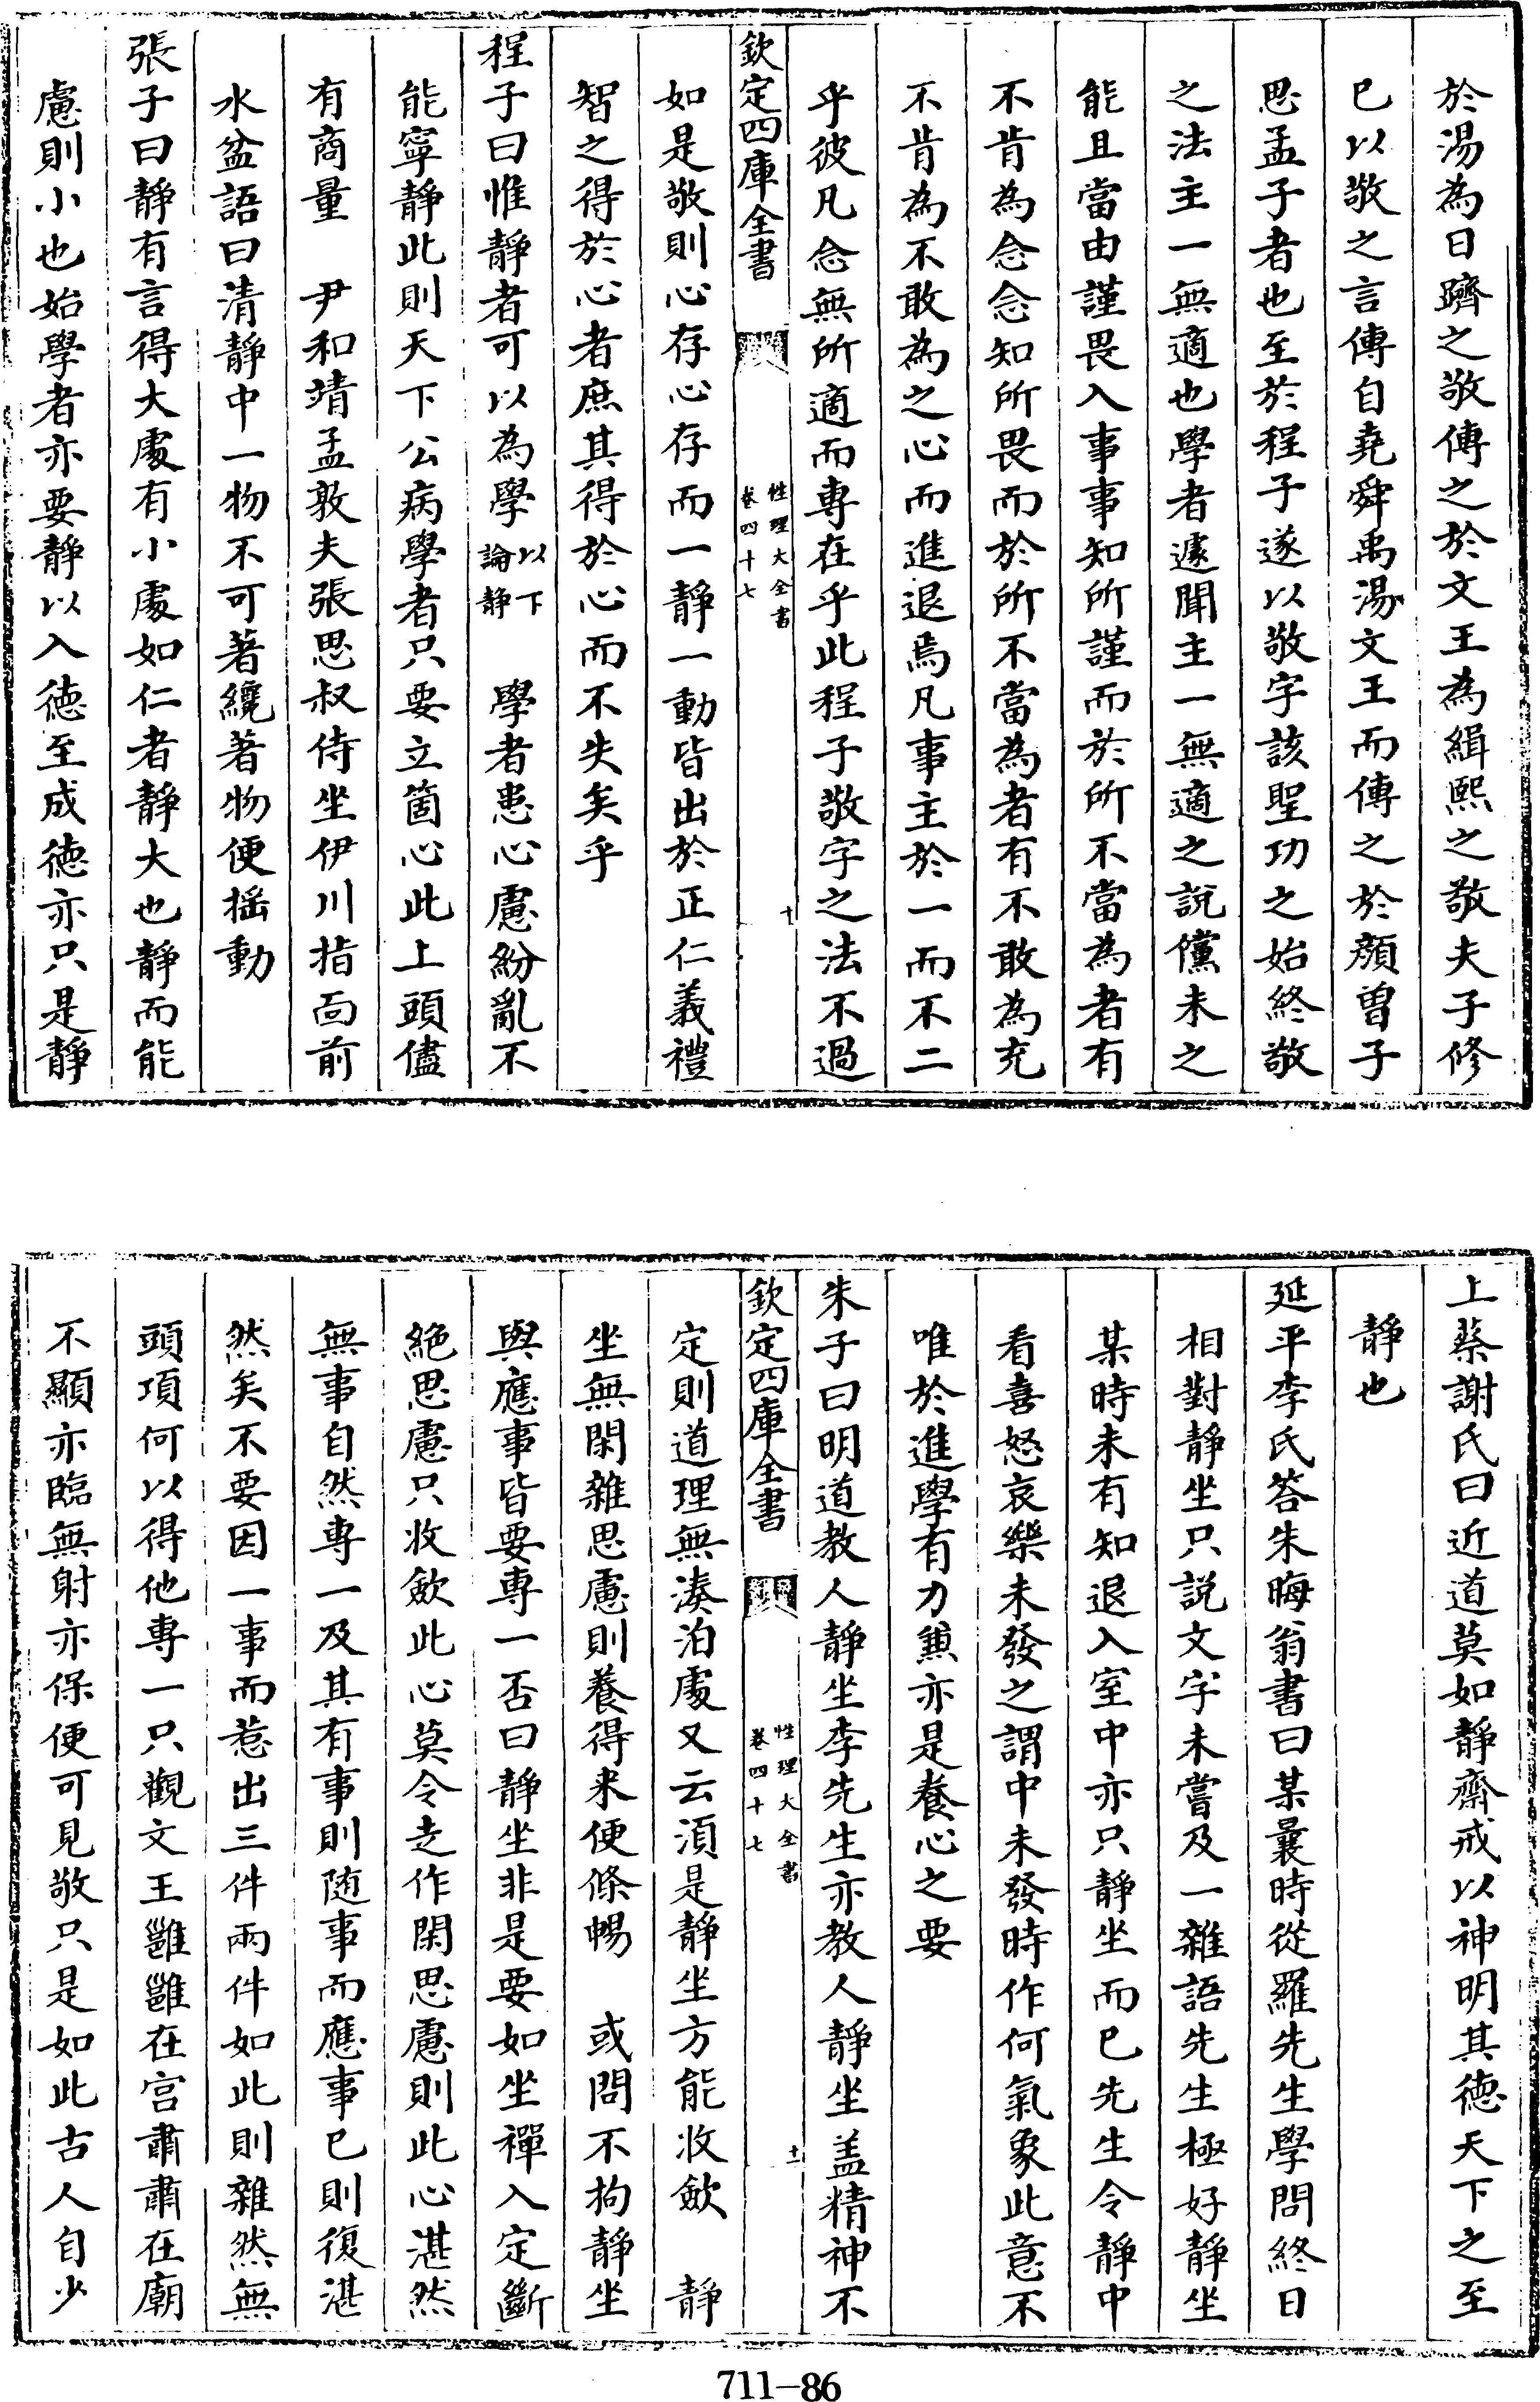 於湯為日躋之敬傳之於文王為緝熙之敬夫子修
已以敬之言傳自堯舜禹湯文王而傳之於顔曽子
思孟子者也至於程子遂以敬字該聖功之始終敬
之法主一無適也學者遽聞主一無適之說儻未之
能且當由謹畏入事事知所謹而於所不當為者有
不肯為念念知所畏而於所不當為者有不敢為充
不肯為不敢為之心而進退焉凡事主於一而不二
乎彼凡念無所適而專在乎此程子敬字之法不過
欽定四庫全書
性理大全書
卷四十七
十
如是敬則心存心存而一靜一動皆出於正仁義禮
智之得於心者庶其得於心而不失矣乎
程子曰惟靜者可以為學以下論靜 學者患心慮紛亂不
能寧靜此則天下公病學者只要立箇心此上頭儘
有商量 尹和靖孟敦夫張思叔侍坐伊川指面前
水盆語曰清靜中一物不可著纔著物便搖動
張子曰靜有言得大處有小處如仁者靜大也靜而能
慮則小也始學者亦要靜以入徳至成徳亦只是靜
上蔡謝氏曰近道莫如靜齋戒以神明其徳天下之至
靜也
延平李氏答朱晦翁書曰某曩時從羅先生學問終日
相對靜坐只說文字未嘗及一雜語先生極好靜坐
某時未有知退入室中亦只靜坐而已先生令靜中
看喜怒哀樂未發之謂中未發時作何氣象此意不
唯於進學有力兼亦是養心之要
朱子曰明道教人靜坐李先生亦教人靜坐盖精神不
欽定四庫全書
性理大全書
卷四十七
十一
定則道理無湊泊處又云須是靜坐方能收斂 靜
坐無閑雜思慮則養得来便條暢 或問不拘靜坐
與應事皆要專一否曰靜坐非是要如坐禪入定斷
絶思慮只收斂此心莫令走作閑思慮則此心湛然
無事自然專一及其有事則随事而應事已則復湛
然矣不要因一事而惹出三件兩件如此則雜然無
頭項何以得他專一只觀文王雝雝在宫肅肅在廟
不顯亦臨無射亦保便可見敬只是如此古人自少
711-86